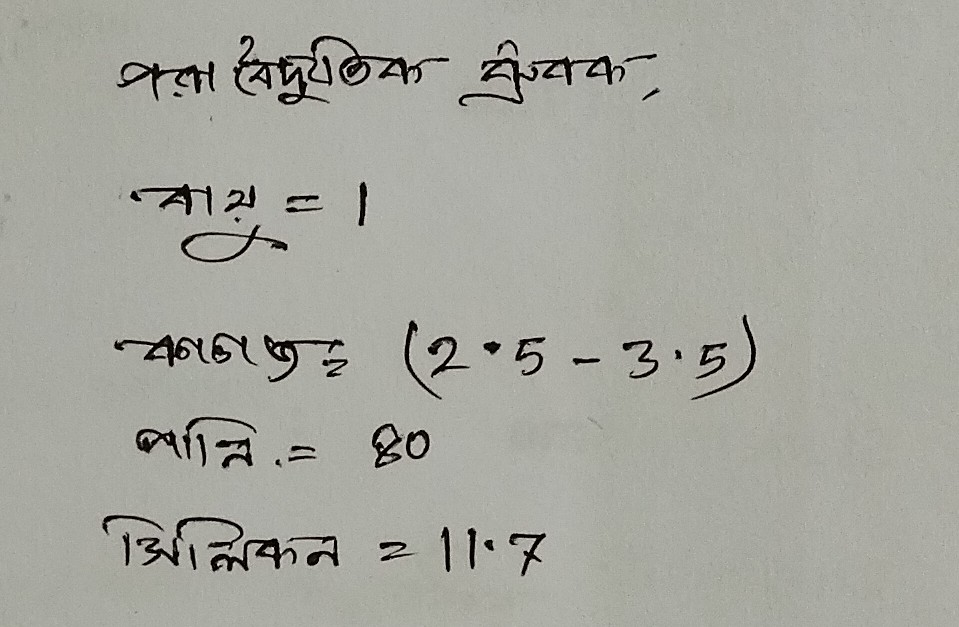 পরা বৈদ্যুতিক ধ্রুবক,
বায়ু = 1
কাগজ = (2.5 - 3.5)
পানি = 80
সিলিকন = 11.7